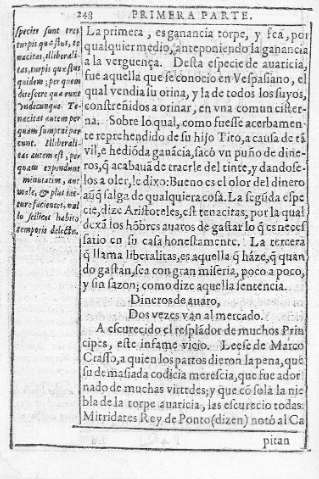 248 PRIMERA PARTE.
species sunt tres
turpis quæstus, te
nacitas, illiberali-
tas, turpis quæstus
quidem; per quem
discere quæ runt
undecunque. Te-
nacitas autem per
quam sumptui par
cunt. Illiberali-
tas autem est, per
quam expendunt
minutatim, ac
male, & plus tinc
turæ facientes, nul
lo scilicet habito
temporis delectu.
La primera, es ganancia torpe, y fea, por
qualquier medio, anteponiendo la ganancia
a la verguença. Desta especie de auaricia,
fue aquella que se conocio en Vespasiano, el
qual vendia su orina, y la de todos los suyos,
constreñidos a orinar, en vna comun cister-
na. Sobre lo qual, como fuesse acerbamen-
te reprehendido de su hijo Tito, a causa de tã
vil, e hedióda ganãcia, sacó vn puño de dine-
ros, q̃ acabauã de traerle del tinte, y dandose-
los a oler, le dixo: Bueno es el olor del dinero
aũq̃ salga de qualquiera cosa. La següda espe
cie, dize Aristoteles, est tenacitas, por la qual
dexã los hõbres auaros de gastar lo q̃ es neces
sario en su casa honestamente. La tercera
q̃ llama liberalitas, es aquella q̃ haze, q̃ quan
do gastan, sea con gran miseria, poco a poco,
y sin sazon; como dize aquella sentencia.
Dineros de auaro,
Dos vezes van al mercado.
A escurecido el resplãdor de muchos Prin
cipes, este infame vicio. Leese de Marco
Crasso, a quien los partos dieron la pena, que
su demasiada codicia merescia, que fue ador
nado de muchas virtudes; y que cõ sola la nie
bla de la torpe auaricia, las escurecio todas.
Mitridates Rey de Ponto (dizen) notó al Ca
pitan